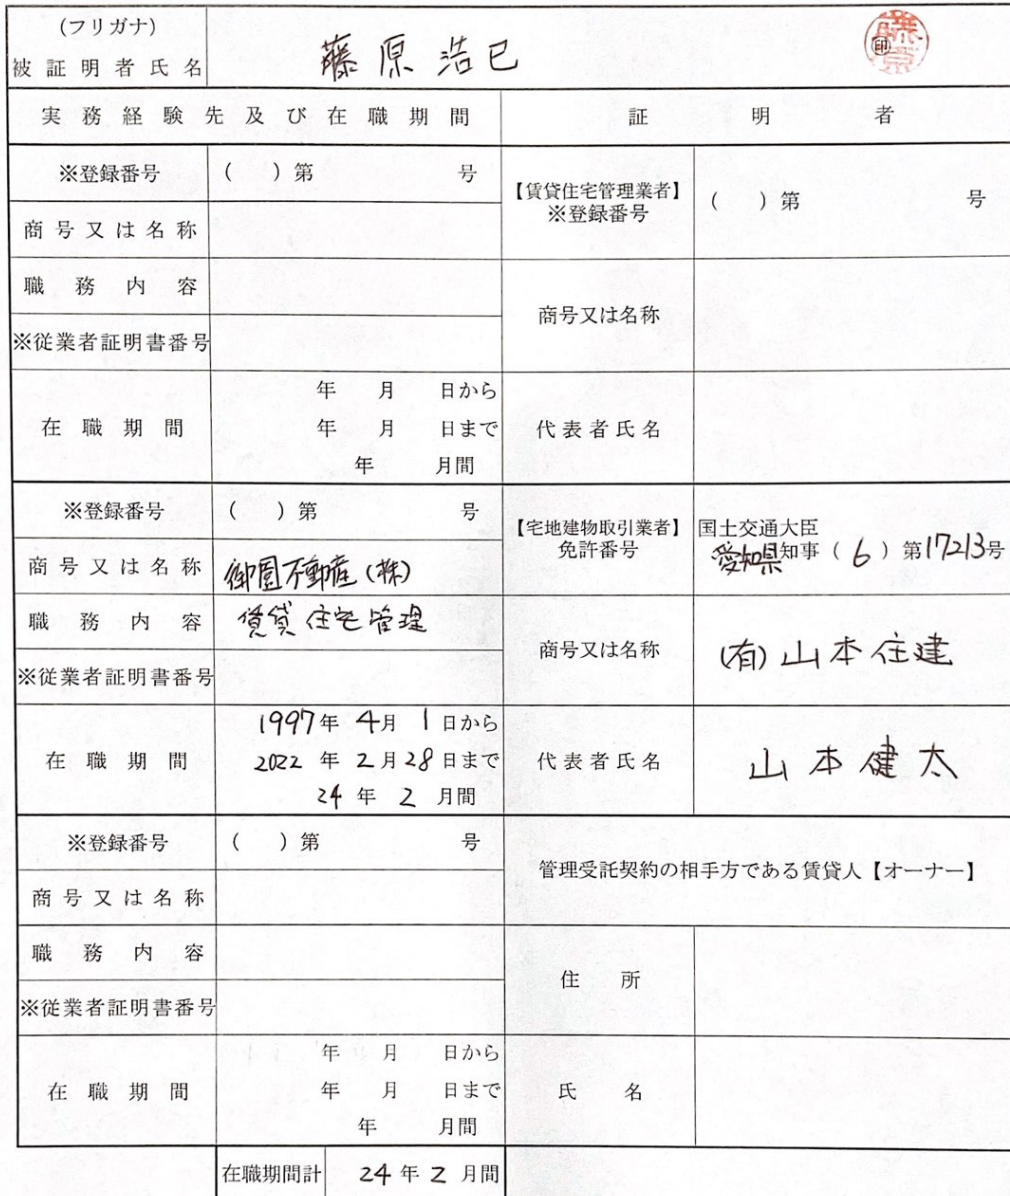 (フリガナ)
被証明者氏名 藤原浩已
印
実務経験先及び在職期間 証明者
※登録番号 ( )第 号
商号又は名称
職務内容
※従業者証明書番号
在職期間 年 月 日から
年 月 日まで
年 月間
【賃貸住宅管理業者】
※登録番号 ( )第 号
商号又は名称
代表者氏名
※登録番号 ( )第 号
商号又は名称 御園不動産(株)
職務内容 賃貸住宅管理
※従業者証明書番号
在職期間 1997年 4月 1日から
2022年 2月28日まで
24年 2月間
【宅地建物取引業者】
免許番号
国土交通大臣
愛知県知事(6)第17213号
商号又は名称 (有)山本住建
代表者氏名 山本健太
※登録番号 ( )第 号
商号又は名称
職務内容
※従業者証明書番号
在職期間 年 月 日から
年 月 日まで
年 月間
管理受託契約の相手方である賃貸人【オーナー】
住所
氏名
在職期間計 24年2月間